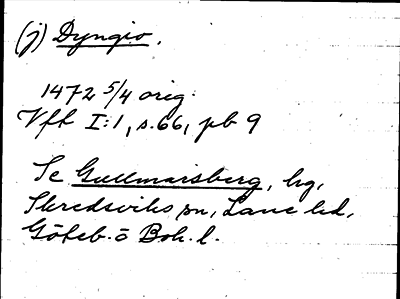 (j) Dyngio.
1472 5/4 orig.
Vfk I:1, s. 66, pb 9
Se Gullmarsberg, hg,
Skredsviks sn, Lane hd,
Göteb. o Boh. l.